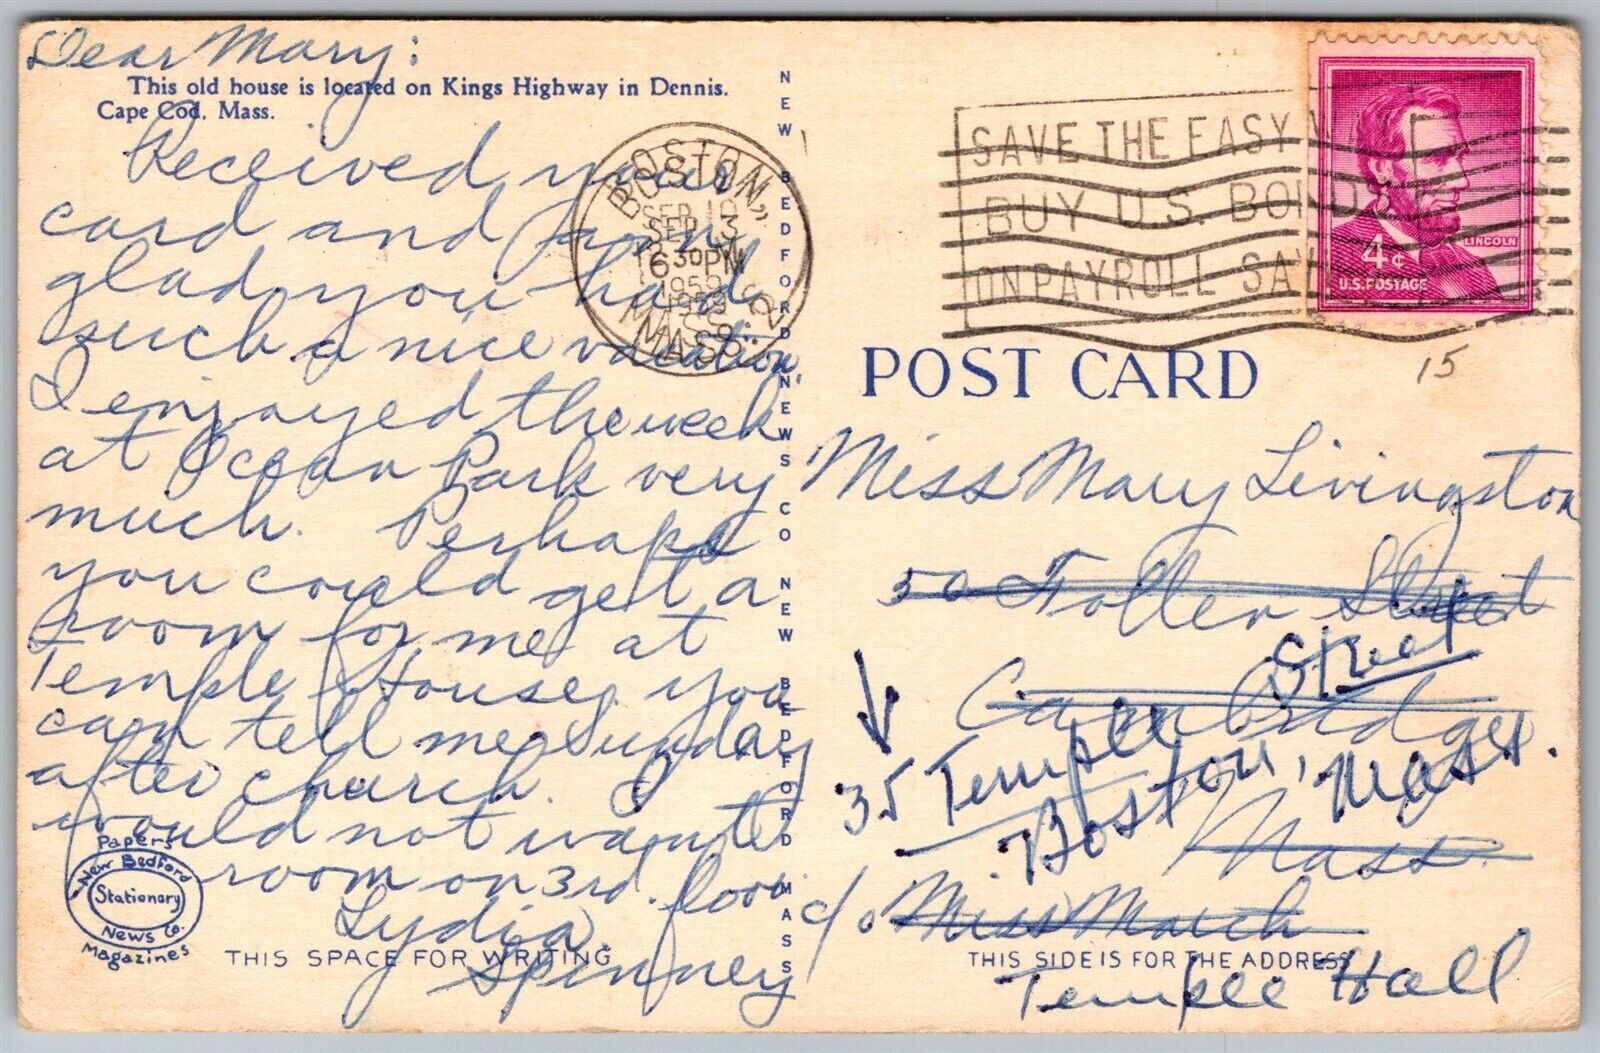 Dear Mary:
This old house is located on Kings Highway in Dennis.
Cape Cod, Mass.
Received your
card and am
glad you had
such a nice vacation,
I enjoyed the week
at Ocean Park very
much. Perhaps
you could get a
room for me at
Temple House, you
can tell me Sunday
after church. I
would not want
room on 3rd. floor
Lydia
Spinney
Papers
New Bedford
Stationary
News Co.
Magazines
THIS SPACE FOR WRITING
NEW BEDFORD NEWS CO NEW BEDFORD MASS
BOSTON,
SEP 3
6 30PM
1959
MASS.
SAVE THE EASY
BUY U.S. BONDS
ON PAYROLL SAV
LINCOLN
4¢
U.S. POSTAGE
15
POST CARD
Miss Mary Livingston
50 Follen Street
Street
Cambridge
35 Temple
Boston, Mass.
Mass.
c/o Miss March
THIS SIDE IS FOR THE ADDRESS
Temple Hall